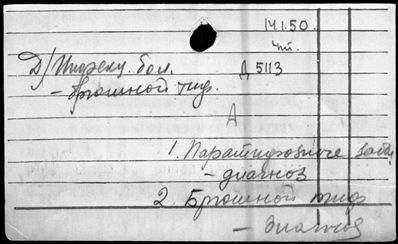 14.1.50.
чт.
Д/ Инфекц. бол.
Д 5113
- брюшной тиф.
А
1. Паратифозные заб.
- диагноз
2. Брюшной тиф
- диагноз